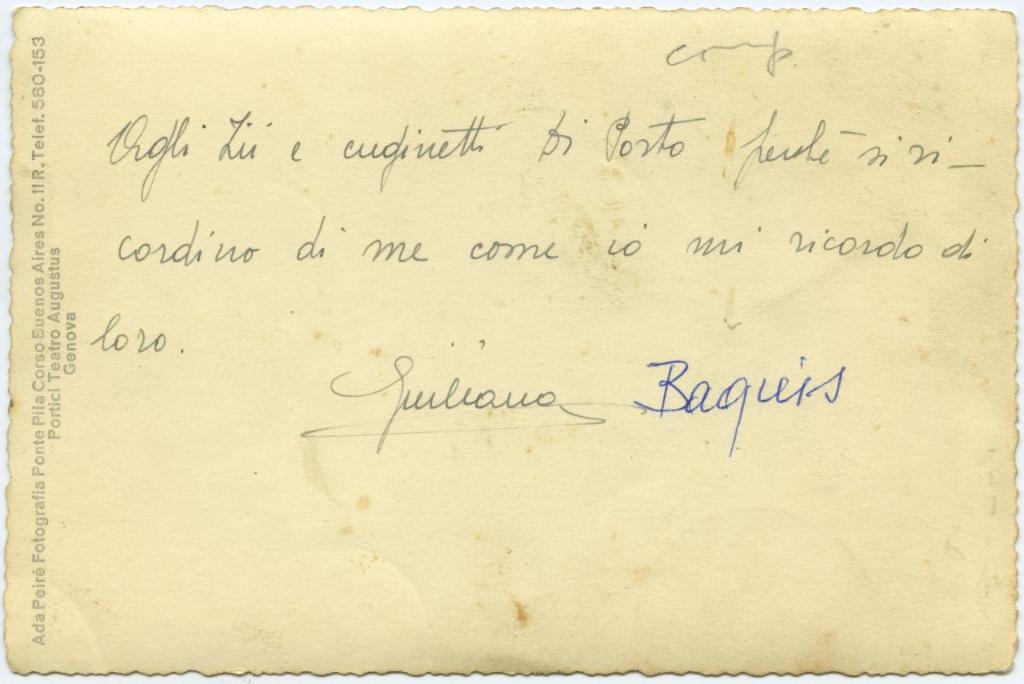 comp.
Agli Zii e cuginetti Di Porto perchè si ri-
cordino di me come io mi ricordo di
loro.
Giuliana Baquis
Ada Peiré Fotografia Ponte Pila Corso Buenos Aires No. 11 R. Telef. 580-153
Portici Teatro Augustus
Genova